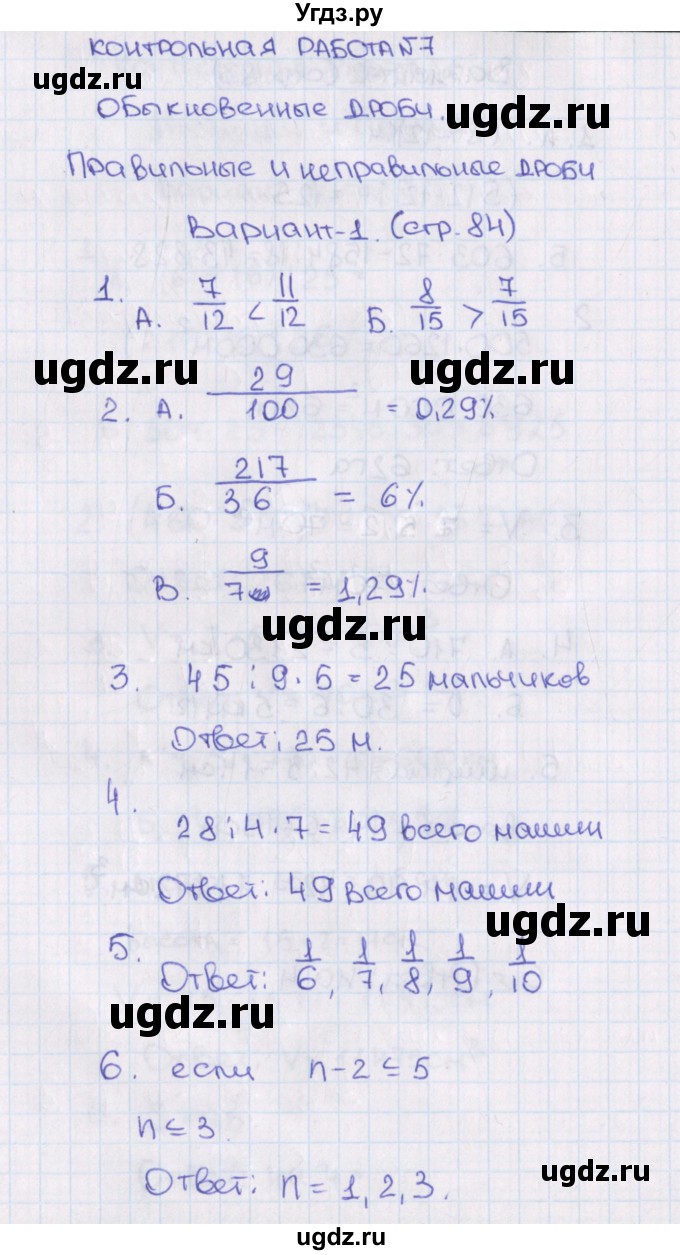 Угдз.ру
КОНТРОЛЬНАЯ РАБОТА №7
ugdz.ru
Обыкновенные дроби.
ugdz.ru
Правильные и неправильные дроби
Вариант-1. (стр. 84)
1. А. 7/12 < 11/12 Б. 8/15 > 7/15
ugdz.ru ugdz.ru
2. А. 29/100 = 0,29%
Б. 217/36 = 6%
В. 9/7 = 1,29%
ugdz.ru
3. 45 : 9 · 5 = 25 мальчиков
Ответ: 25 м.
4.
28 : 4 · 7 = 49 всего машин
Ответ: 49 всего машин
ugdz.ru
5. Ответ: 1/6, 1/7, 1/8, 1/9, 1/10
ugdz.ru
6. если n - 2 ≤ 5
n ≤ 3
ugdz.ru
Ответ: n = 1, 2, 3.
ugdz.ru
Угдз.ру